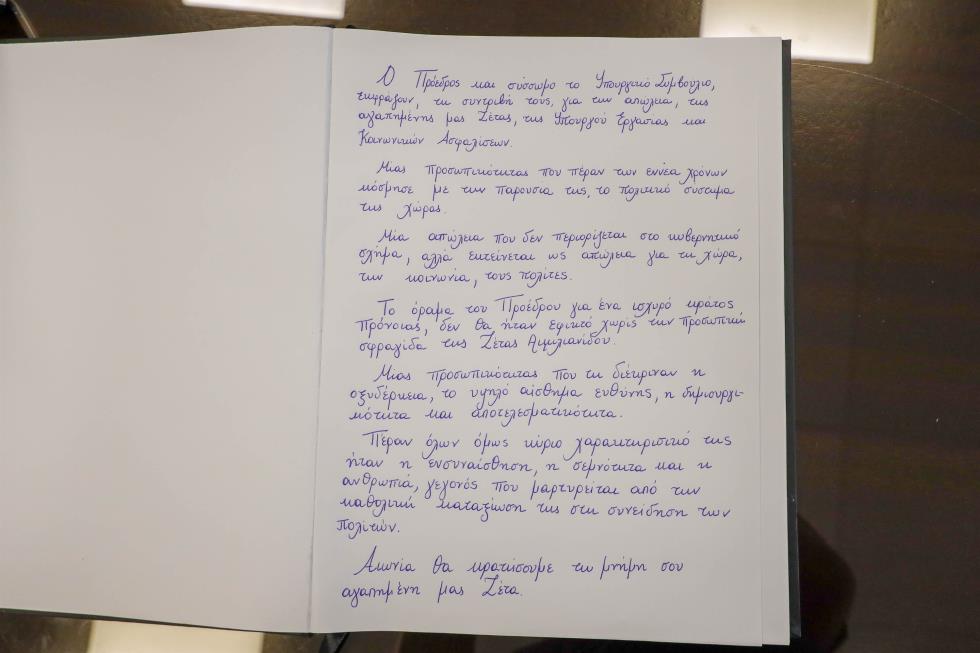 Ο Πρόεδρος και σύσσωμο το Υπουργικό Συμβούλιο,
εκφράζουν, τη συντριβή τους, για την απώλεια, της
αγαπημένης μας Ζέτας, της Υπουργού Εργασίας και
Κοινωνικών Ασφαλίσεων.
Μίας προσωπικότητας που πέραν των εννέα χρόνων
κόσμησε με την παρουσία της, το πολιτικό σύστημα
της χώρας.
Μία απώλεια που δεν περιορίζεται στο κυβερνητικό
σχήμα, αλλά εκτείνεται ως απώλεια για τη χώρα,
την κοινωνία, τους πολίτες.
Το όραμα του Προέδρου για ένα ισχυρό κράτος
πρόνοιας, δεν θα ήταν εφικτό χωρίς την προσωπική
σφραγίδα της Ζέτας Αιμιλιανίδου.
Μίας προσωπικότητας που τη διέκριναν η
οξυδέρκεια, το υψηλό αίσθημα ευθύνης, η δημιουργι-
κότητα και αποτελεσματικότητα.
Πέραν όλων όμως κύριο χαρακτηριστικό της
ήταν η ενσυναίσθηση, η σεμνότητα και η
ανθρωπιά, γεγονός που μαρτυρείται από την
καθολική καταξίωση της στη συνείδηση των
πολιτών.
Αιωνία θα κρατήσουμε τη μνήμη σου
αγαπημένη μας Ζέτα.